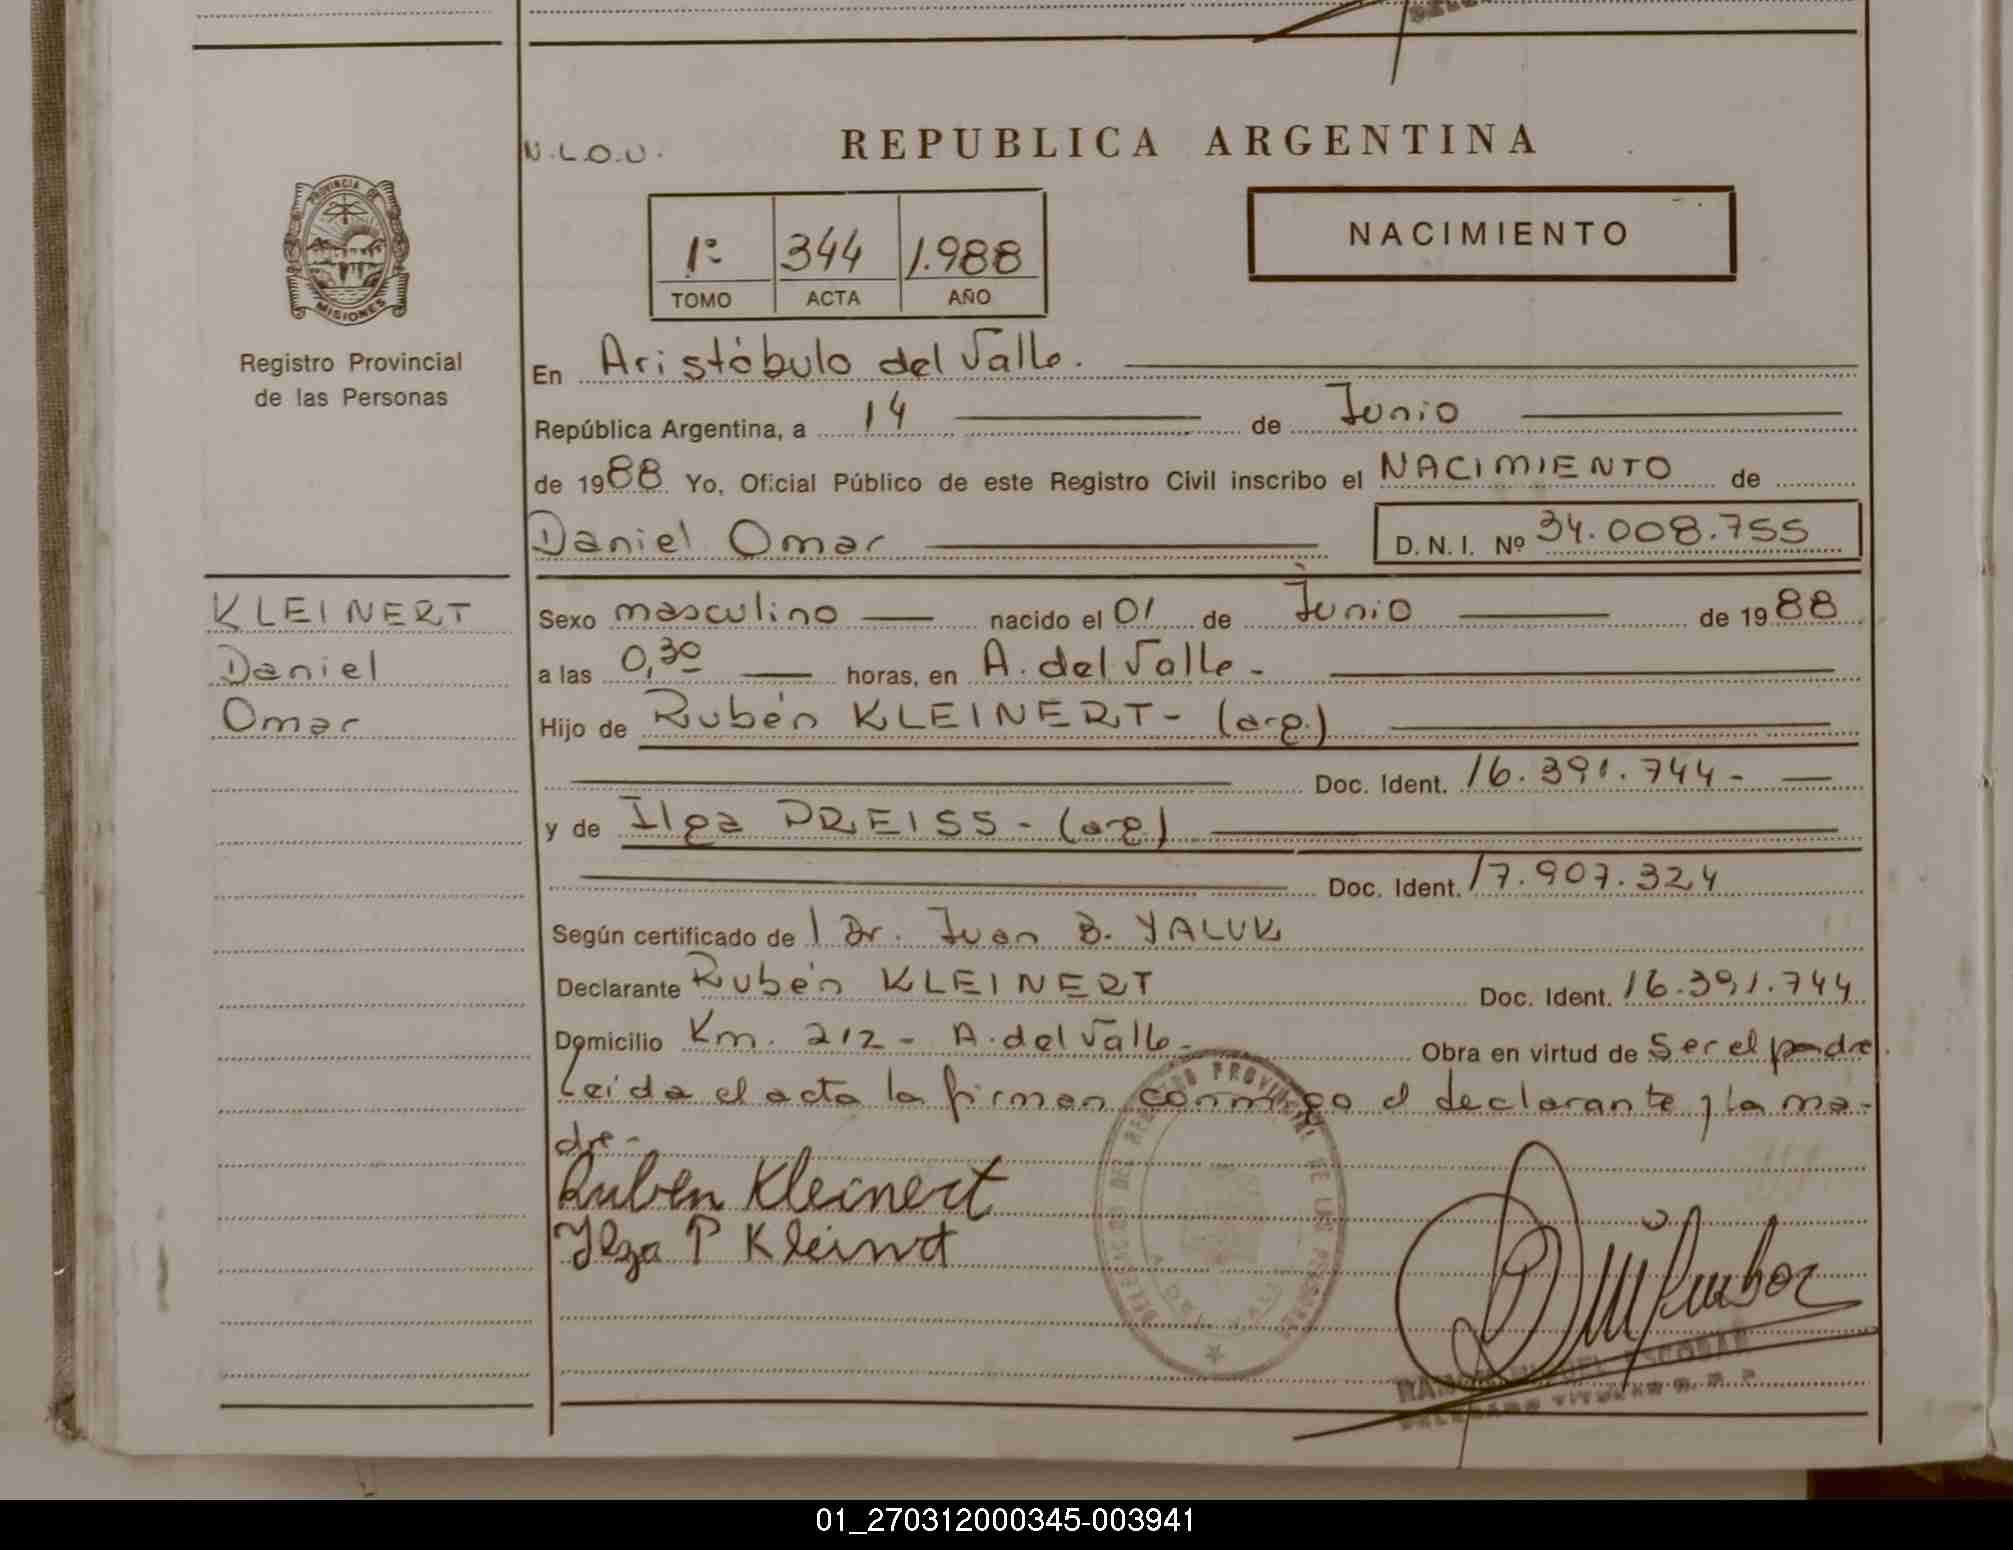 N.L.O.U.
REPUBLICA ARGENTINA
PROVINCIA DE
MISIONES
1º 344 1.988
TOMO ACTA AÑO
NACIMIENTO
Registro Provincial
de las Personas
En Aristóbulo del Valle.
República Argentina, a 14 de Junio
de 1988 Yo, Oficial Público de este Registro Civil inscribo el NACIMIENTO de
Daniel Omar D. N. I. Nº 34.008.755
KLEINERT
Daniel
Omar
Sexo masculino nacido el 01 de Junio de 1988
a las 0,30 horas, en A. del Valle -
Hijo de Rubén KLEINERT - (arg.)
Doc. Ident. 16.391.744 -
y de Ilga PREISS - (arg)
Doc. Ident. 17.907.324
Según certificado de l Dr. Juan B. YALUK
Declarante Rubén KLEINERT Doc. Ident. 16.391.744
Domicilio Km. 212 - A. del Valle - Obra en virtud de Ser el padre.
Leída el acta la firman conmigo el declarante y la ma-
dre -
Ruben Kleinert
Ilga P Kleinert
DELEGACION DEL REGISTRO PROVINCIAL DE LAS PERSONAS
A. DEL VALLE
ESCOBAR
DELEGADO TITULAR R. P. P.
01_270312000345-003941